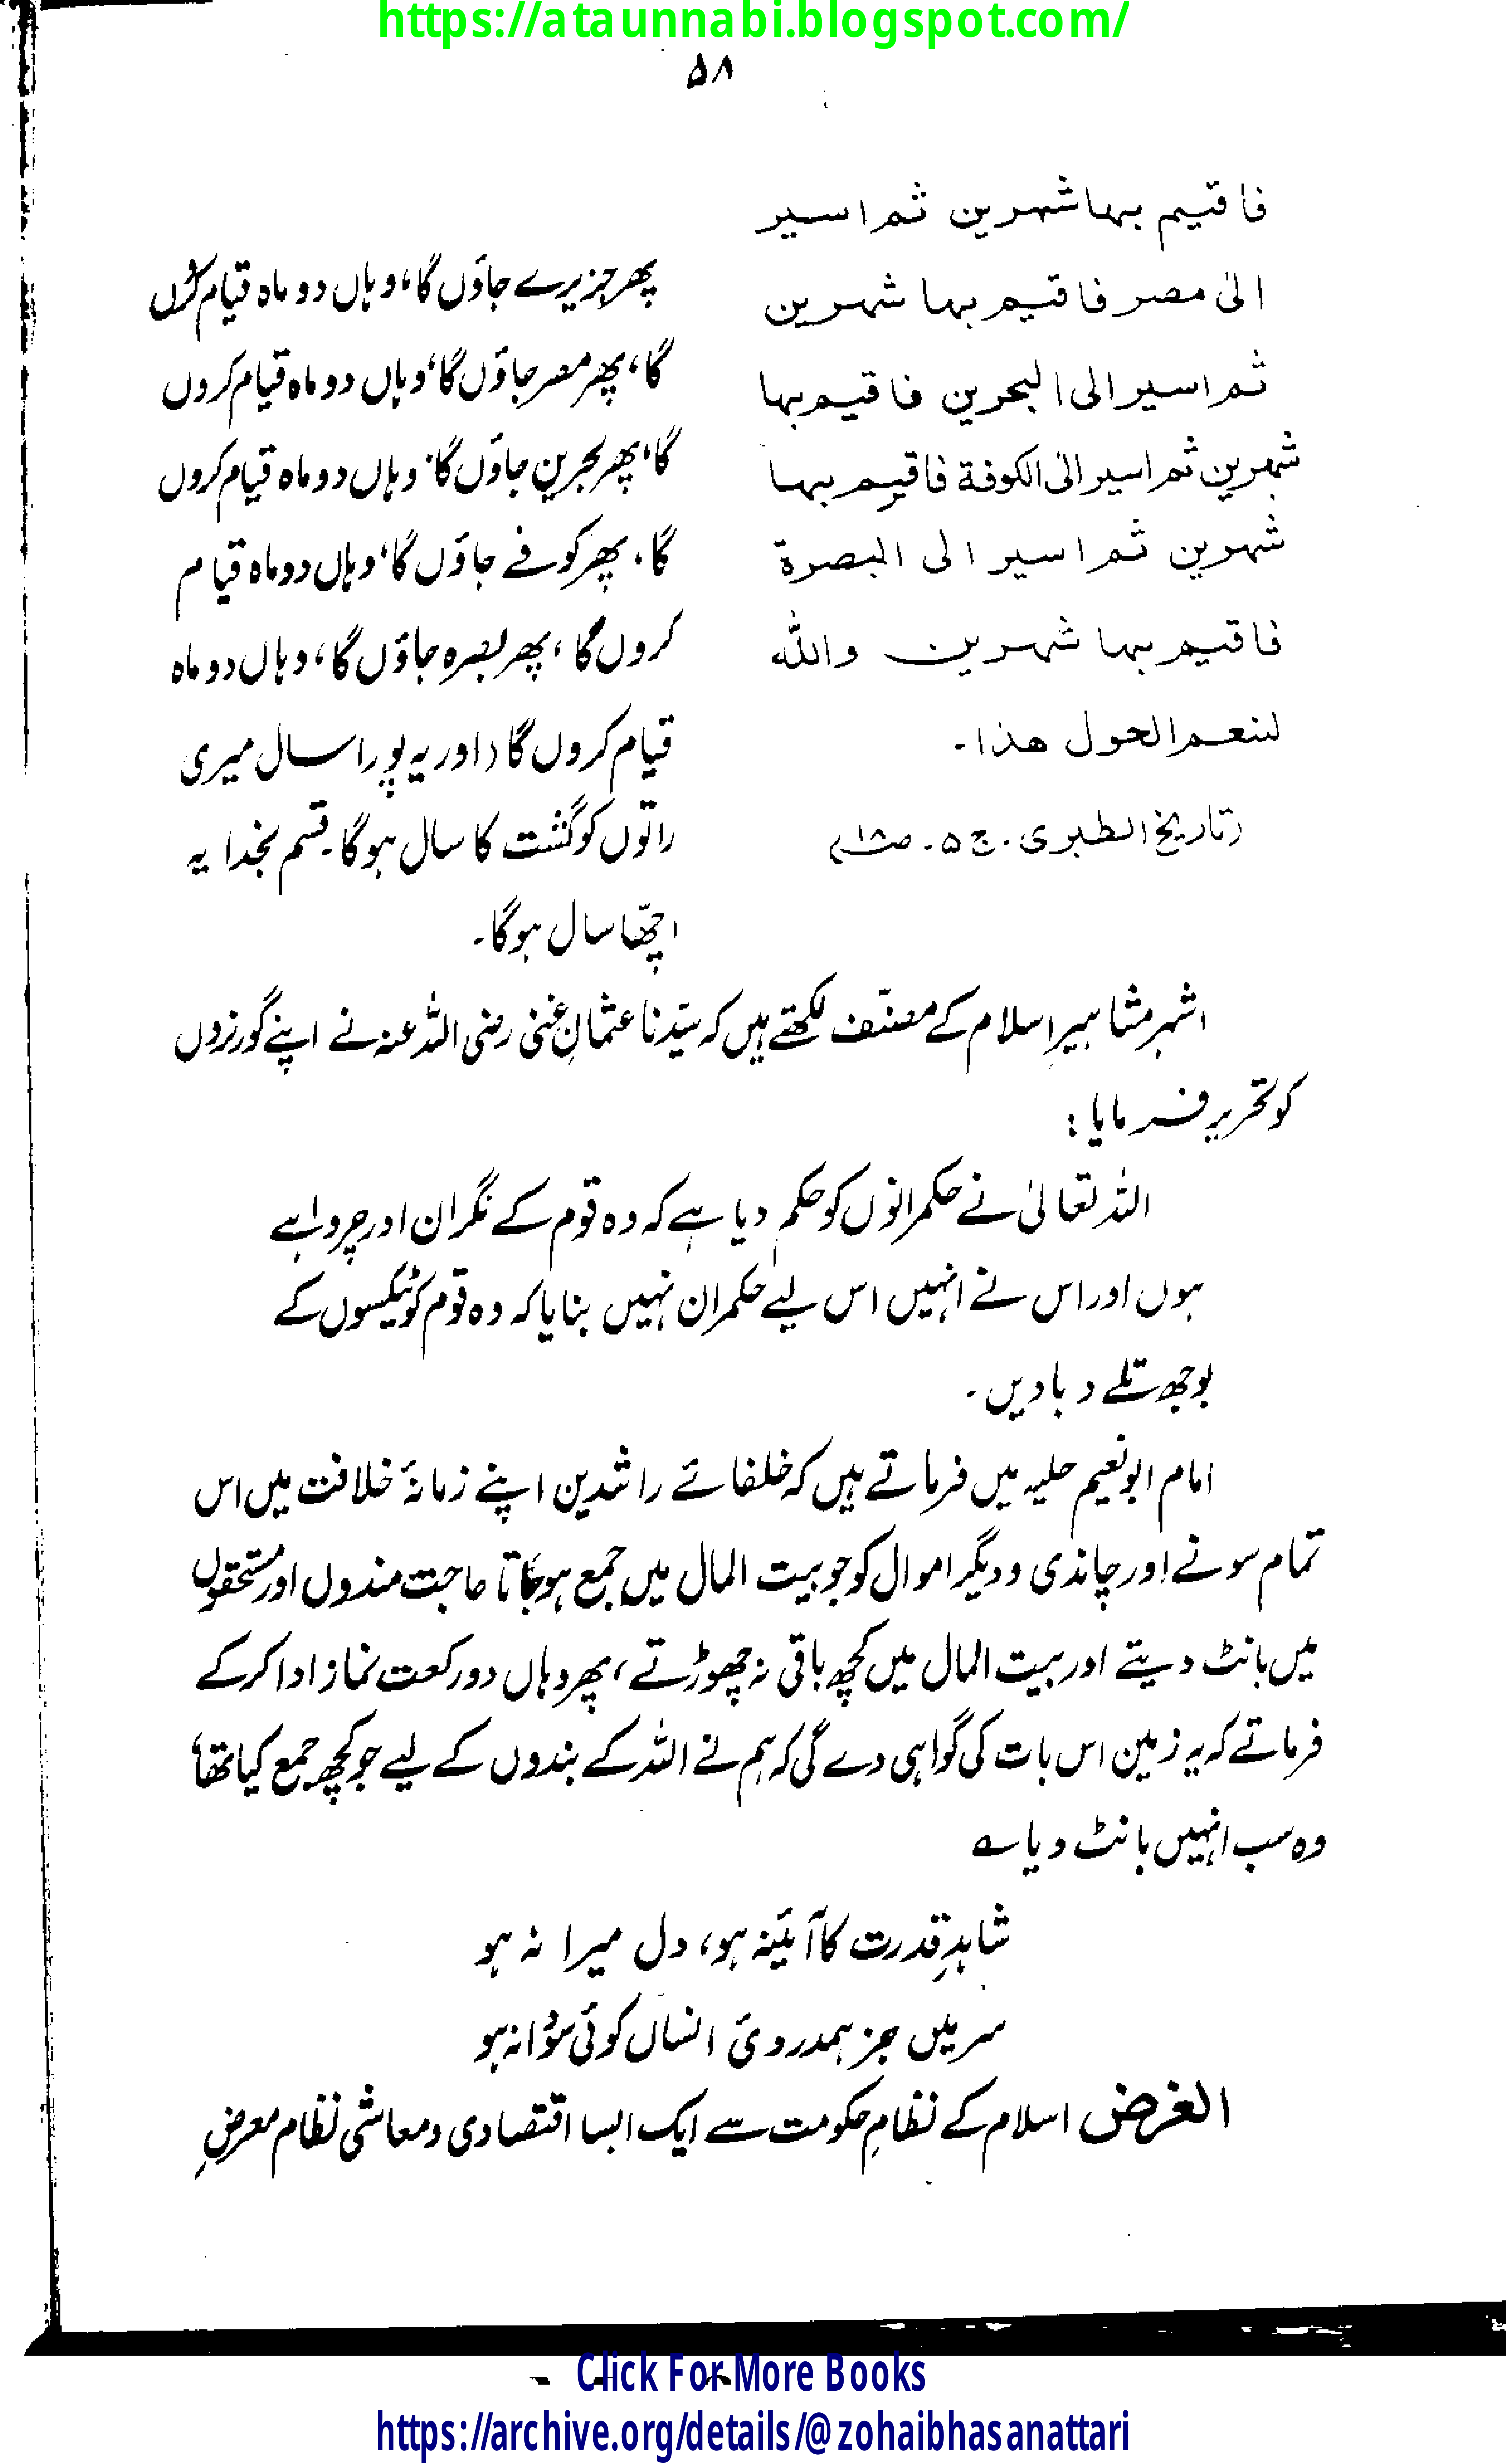 https://ataunnabi.blogspot.com/
۵۸
فاقیم بہا شہرین ثم اسیر
الیٰ مصر فاقیم بہا شہرین
ثم اسیر الی البحرین فاقیم بہا
شہرین ثم اسیر الیٰ الکوفة فاقیم بہا
شہرین ثم اسیر الی البصرة
فاقیم بہا شہرین واللہ
لنعم الحول ھذا۔
(تاریخ الطبری۔ ج ۵۔
پھر جزیرے جاؤں گا، وہاں دو ماہ قیام کروں
گا، پھر مصر جاؤں گا، وہاں دو ماہ قیام کروں
گا، پھر بحرین جاؤں گا، وہاں دو ماہ قیام کروں
گا، پھر کوفے جاؤں گا، وہاں دو ماہ قیام
کروں گا، پھر بصرہ جاؤں گا، وہاں دو ماہ
قیام کروں گا (اور یہ پورا سال میری
راتوں کو گشت کا سال ہوگا۔ قسم بخدا یہ
اچھا سال ہوگا۔
اشہر مشاہیرِ اسلام کے مصنّف لکھتے ہیں کہ سیّدنا عثمانِ غنی رضی اللہ عنہ نے اپنے گورنروں
کو تحریر فرمایا :
اللہ تعالیٰ نے حکمرانوں کو حکم دیا ہے کہ وہ قوم کے نگران اور چرواہے
ہوں اور اس نے انہیں اس لیے حکمران نہیں بنایا کہ وہ قوم کو ٹیکسوں کے
بوجھ تلے دبا دیں۔
امام ابو نعیم حلیہ میں فرماتے ہیں کہ خلفائے راشدین اپنے زمانۂ خلافت میں اس
تمام سونے اور چاندی و دیگر اموال کو جو بیت المال میں جمع ہو جاتا حاجت مندوں اور مستحقوں
میں بانٹ دیتے اور بیت المال میں کچھ باقی نہ چھوڑتے، پھر وہاں دو رکعت نماز ادا کرکے
فرماتے کہ یہ زمین اس بات کی گواہی دے گی کہ ہم نے اللہ کے بندوں کے لیے جو کچھ جمع کیا تھا،
وہ سب انہیں بانٹ دیا ؎
شاہدِ قدرت کا آئینہ ہو، دل میرا نہ ہو
سر میں جز ہمدردئ انساں کوئی سودا نہ ہو
الغرض اسلام کے نظامِ حکومت سے ایک ایسا اقتصادی و معاشی نظام معرضِ
Click For More Books
https://archive.org/details/@zohaibhasanattari